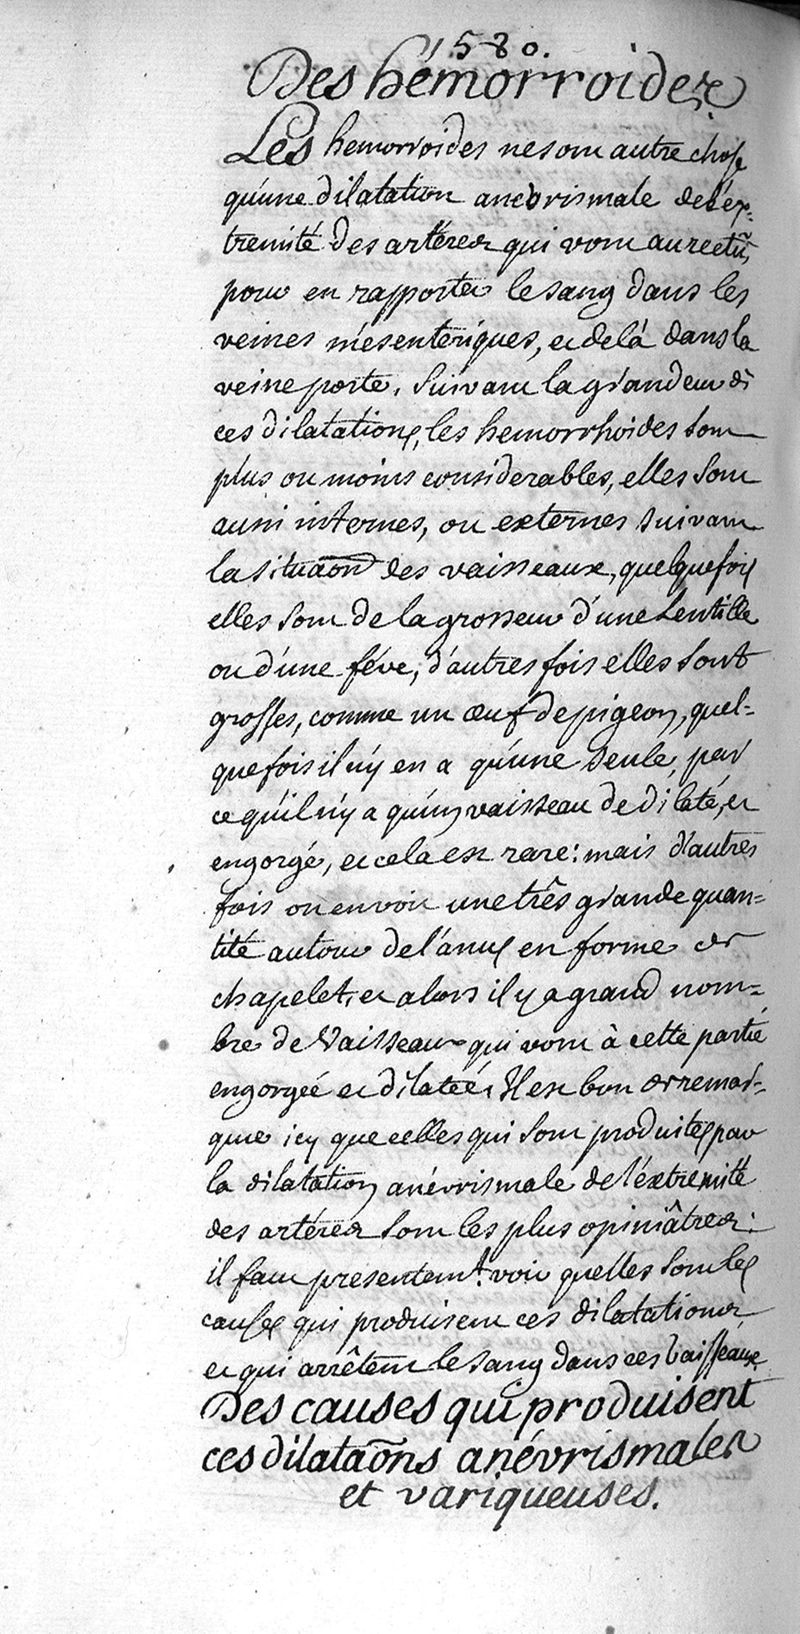 580.
Des hémorroides
Les hemorroides ne sont autre chose
qu'une dilatation anevrismale de l'ex-
tremité des artéres qui vont au rectũ,
pour en rapporter le sang dans les
veines mésentériques, et delà dans la
veine porte, suivant la grandeur de
ces dilatations, les hemorrhoides sont
plus ou moins considerables, elles sont
aussi internes, ou externes suivant
la situaõn des vaisseaux, quelquefois
elles sont de la grosseur d'une Lentille
ou d'une féve, d'autres fois elles sont
grosses, comme un œuf de pigeon, quel-
quefois il n'y en a qu'une seule, par
ce qu'il n'y a qu'un vaisseau de dilaté, et
engorgé, et cela est rare: mais d'autres
fois on en voit une três grande quan-
tité autour de l'anus en forme de
chapelet, et alors il y a grand nom-
bre de Vaisseaux qui vont à cette partie
engorgée et dilatée, Il est bon de remar-
quer icy que celles qui sont produites par
la dilatation anévrismale de l'éxtremité
des artéres sont les plus opiniâtres:
il faut presentemt. voir quelles sont les
causes qui produisent ces dilatations,
et qui arrêtent le sang dans ces Vaisseaux
Des causes qui produisent
ces dilataõns anévrismales
et variqueuses.